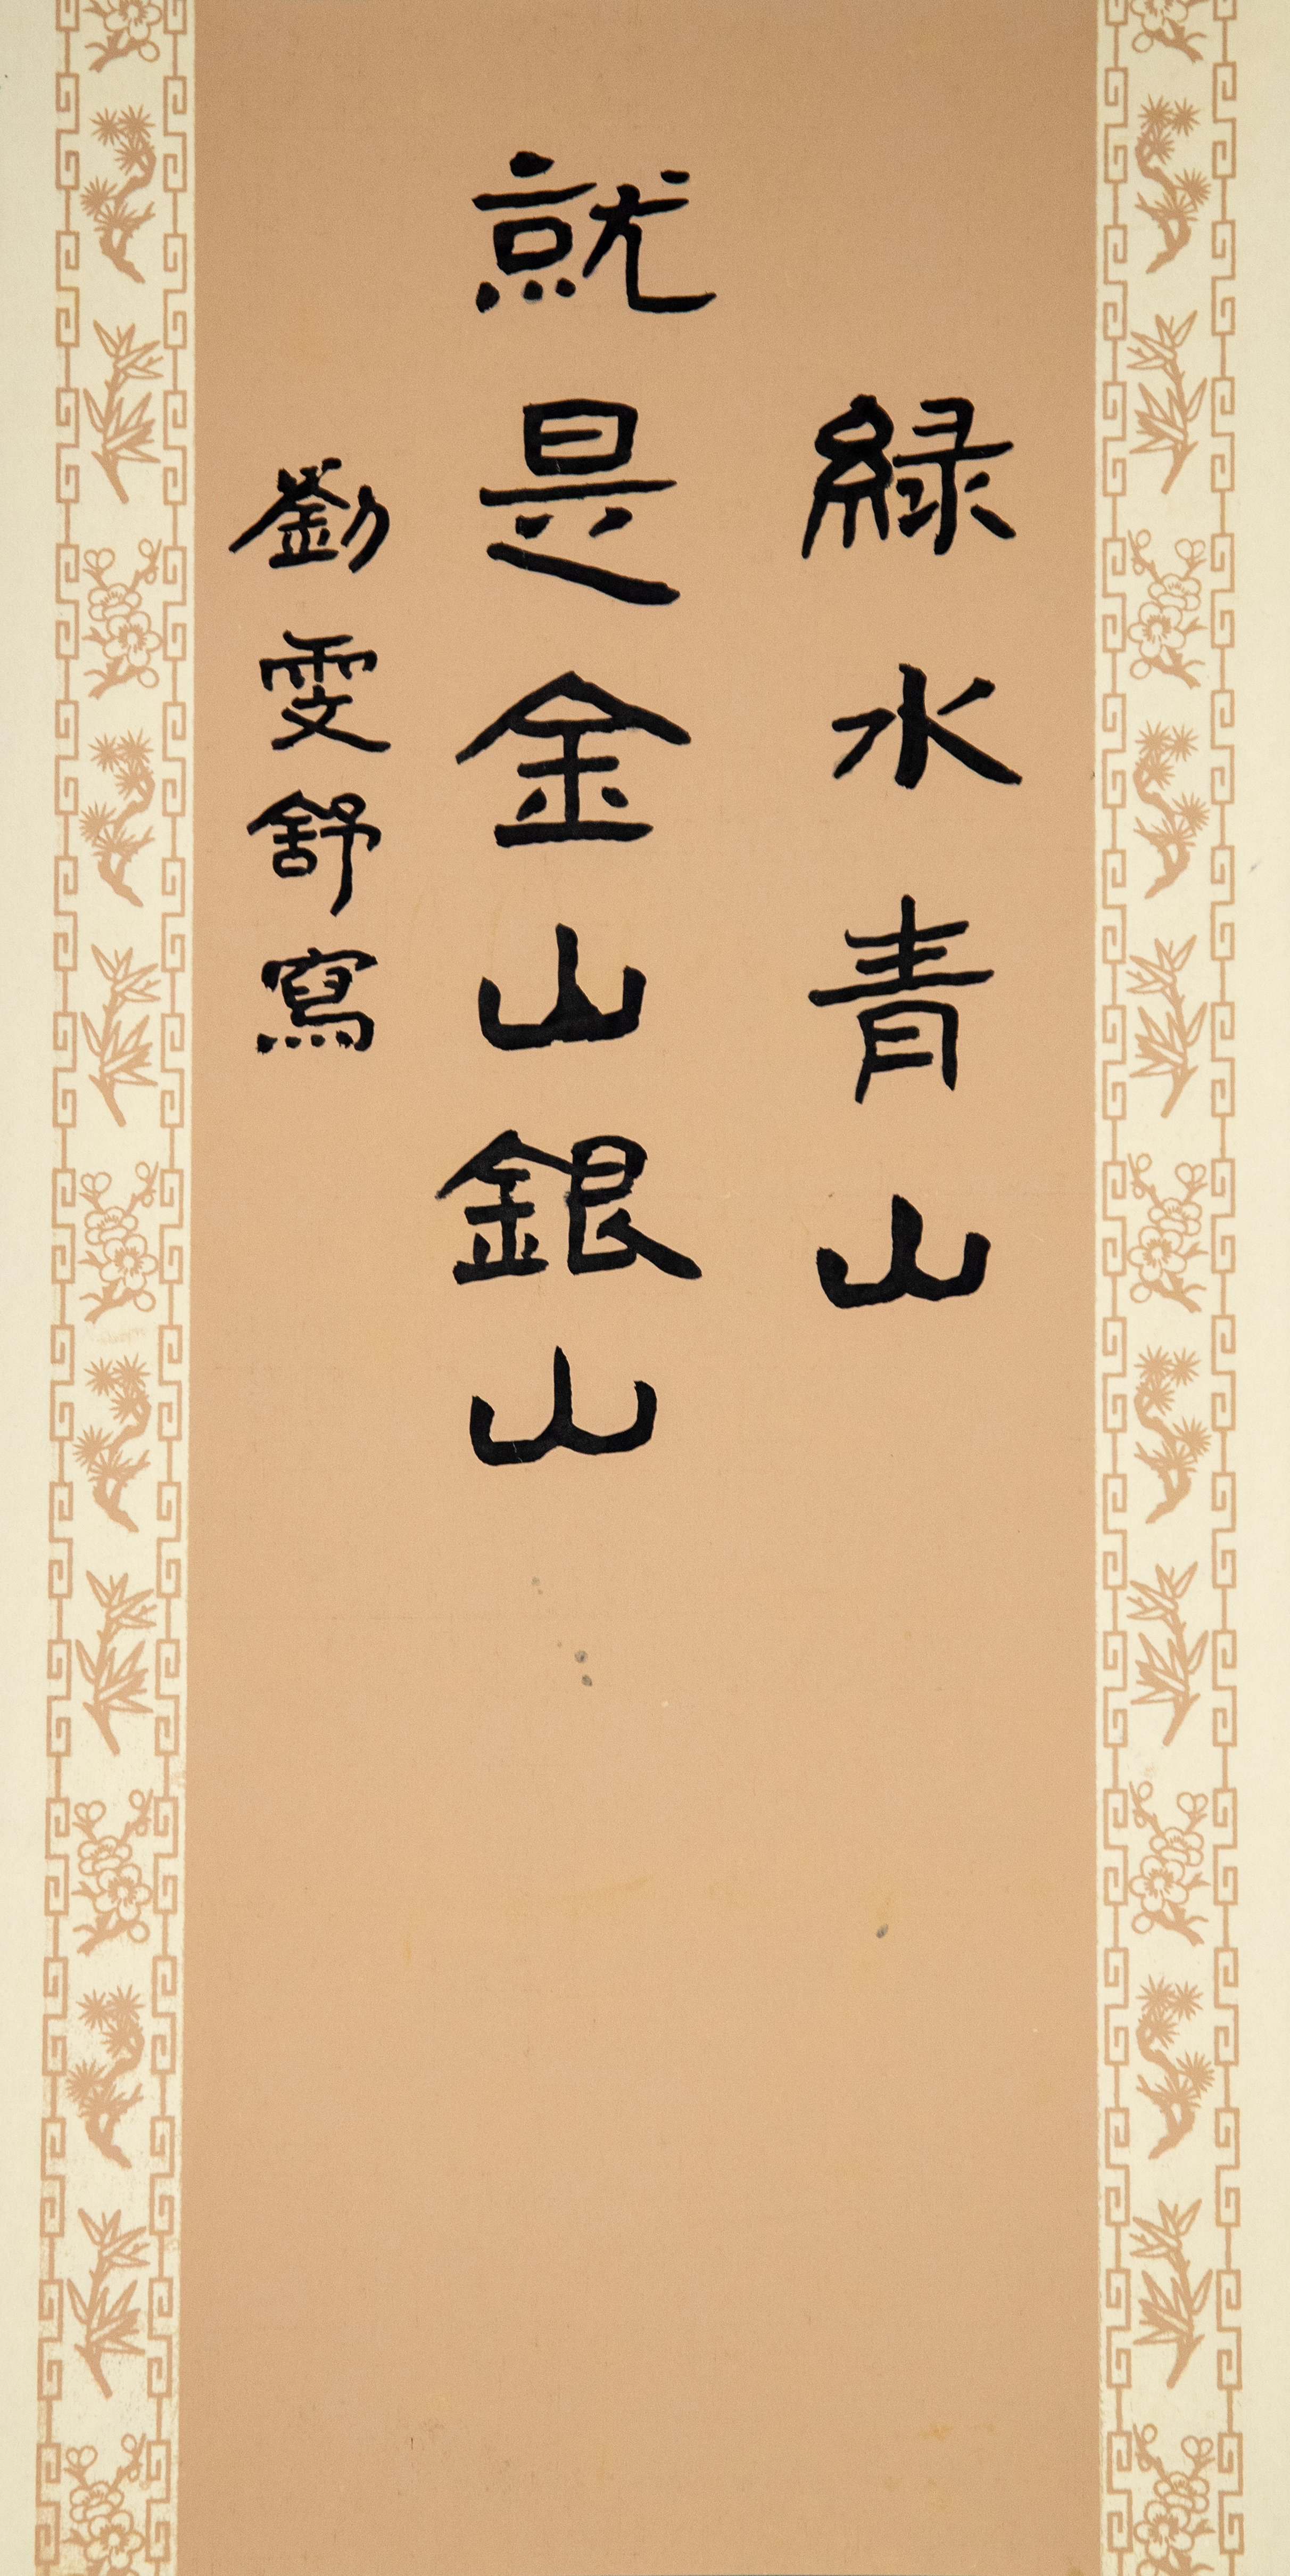 綠水青山
就是金山銀山
劉雯舒寫